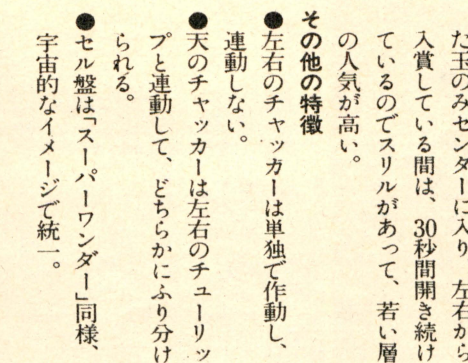 た玉のみセンターに入り 左右から
入賞している間は、30秒間開き続け
ているのでスリルがあって、若い層
の人気が高い。
その他の特徴
●左右のチャッカーは単独で作動し、
連動しない。
●天のチャッカーは左右のチューリッ
プと連動して、どちらかにふり分け
られる。
●セル盤は「スーパーワンダー」同様、
宇宙的なイメージで統一。